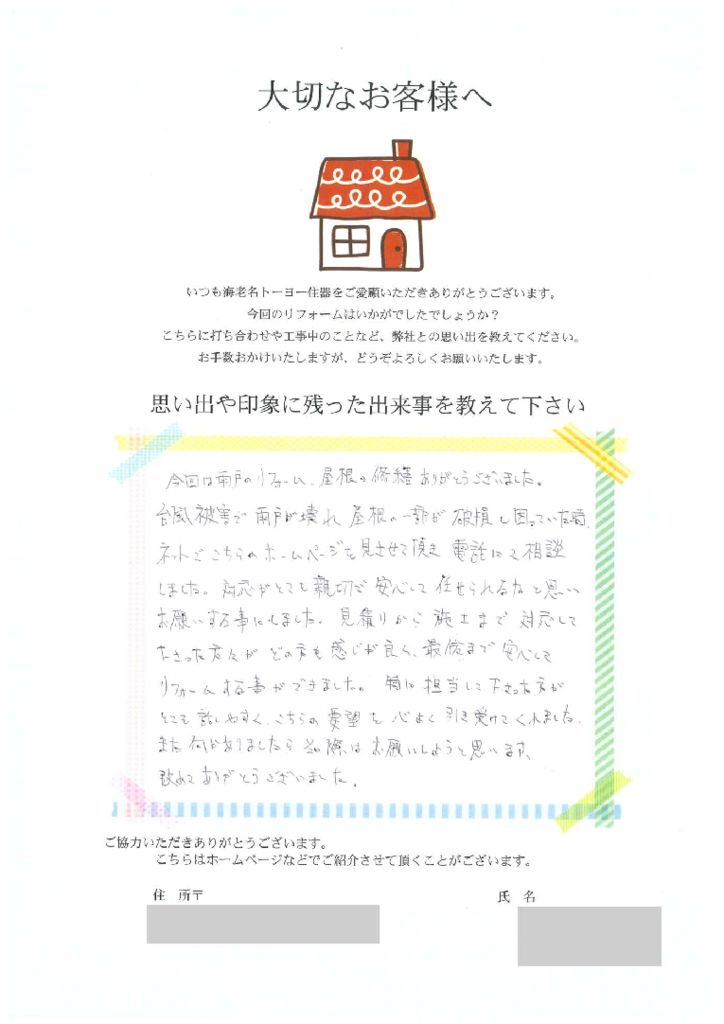 大切なお客様へ
いつも海老名トーヨー住器をご愛願いただきありがとうございます。
今回のリフォームはいかがでしたでしょうか？
こちらに打ち合わせや工事中のことなど、弊社との思い出を教えてください。
お手数おかけいたしますが、どうぞよろしくお願いいたします。
思い出や印象に残った出来事を教えて下さい
今回は雨戸のリフォーム、屋根の修繕ありがとうございました。
台風被害で雨戸が壊れ 屋根の一部が 破損し困っていた時、
ネットでこちらのホームページを見させて頂き 電話にて相談
しました。対応がとても親切で 安心して 任せられるなと思い
お願いする事にしました。見積りから 施工まで 対応して
下さった方々が どの方も感じが良く、最後まで 安心して
リフォームする事ができました。特に 担当して下さった方が
とても 話しやすく、こちらの要望を 心よく引き受けてくれました。
また何かありましたら その際は お願いしようと思います。
改めてありがとうございました。
ご協力いただきありがとうございます。
こちらはホームページなどでご紹介させて頂くことがございます。
住 所〒
氏 名